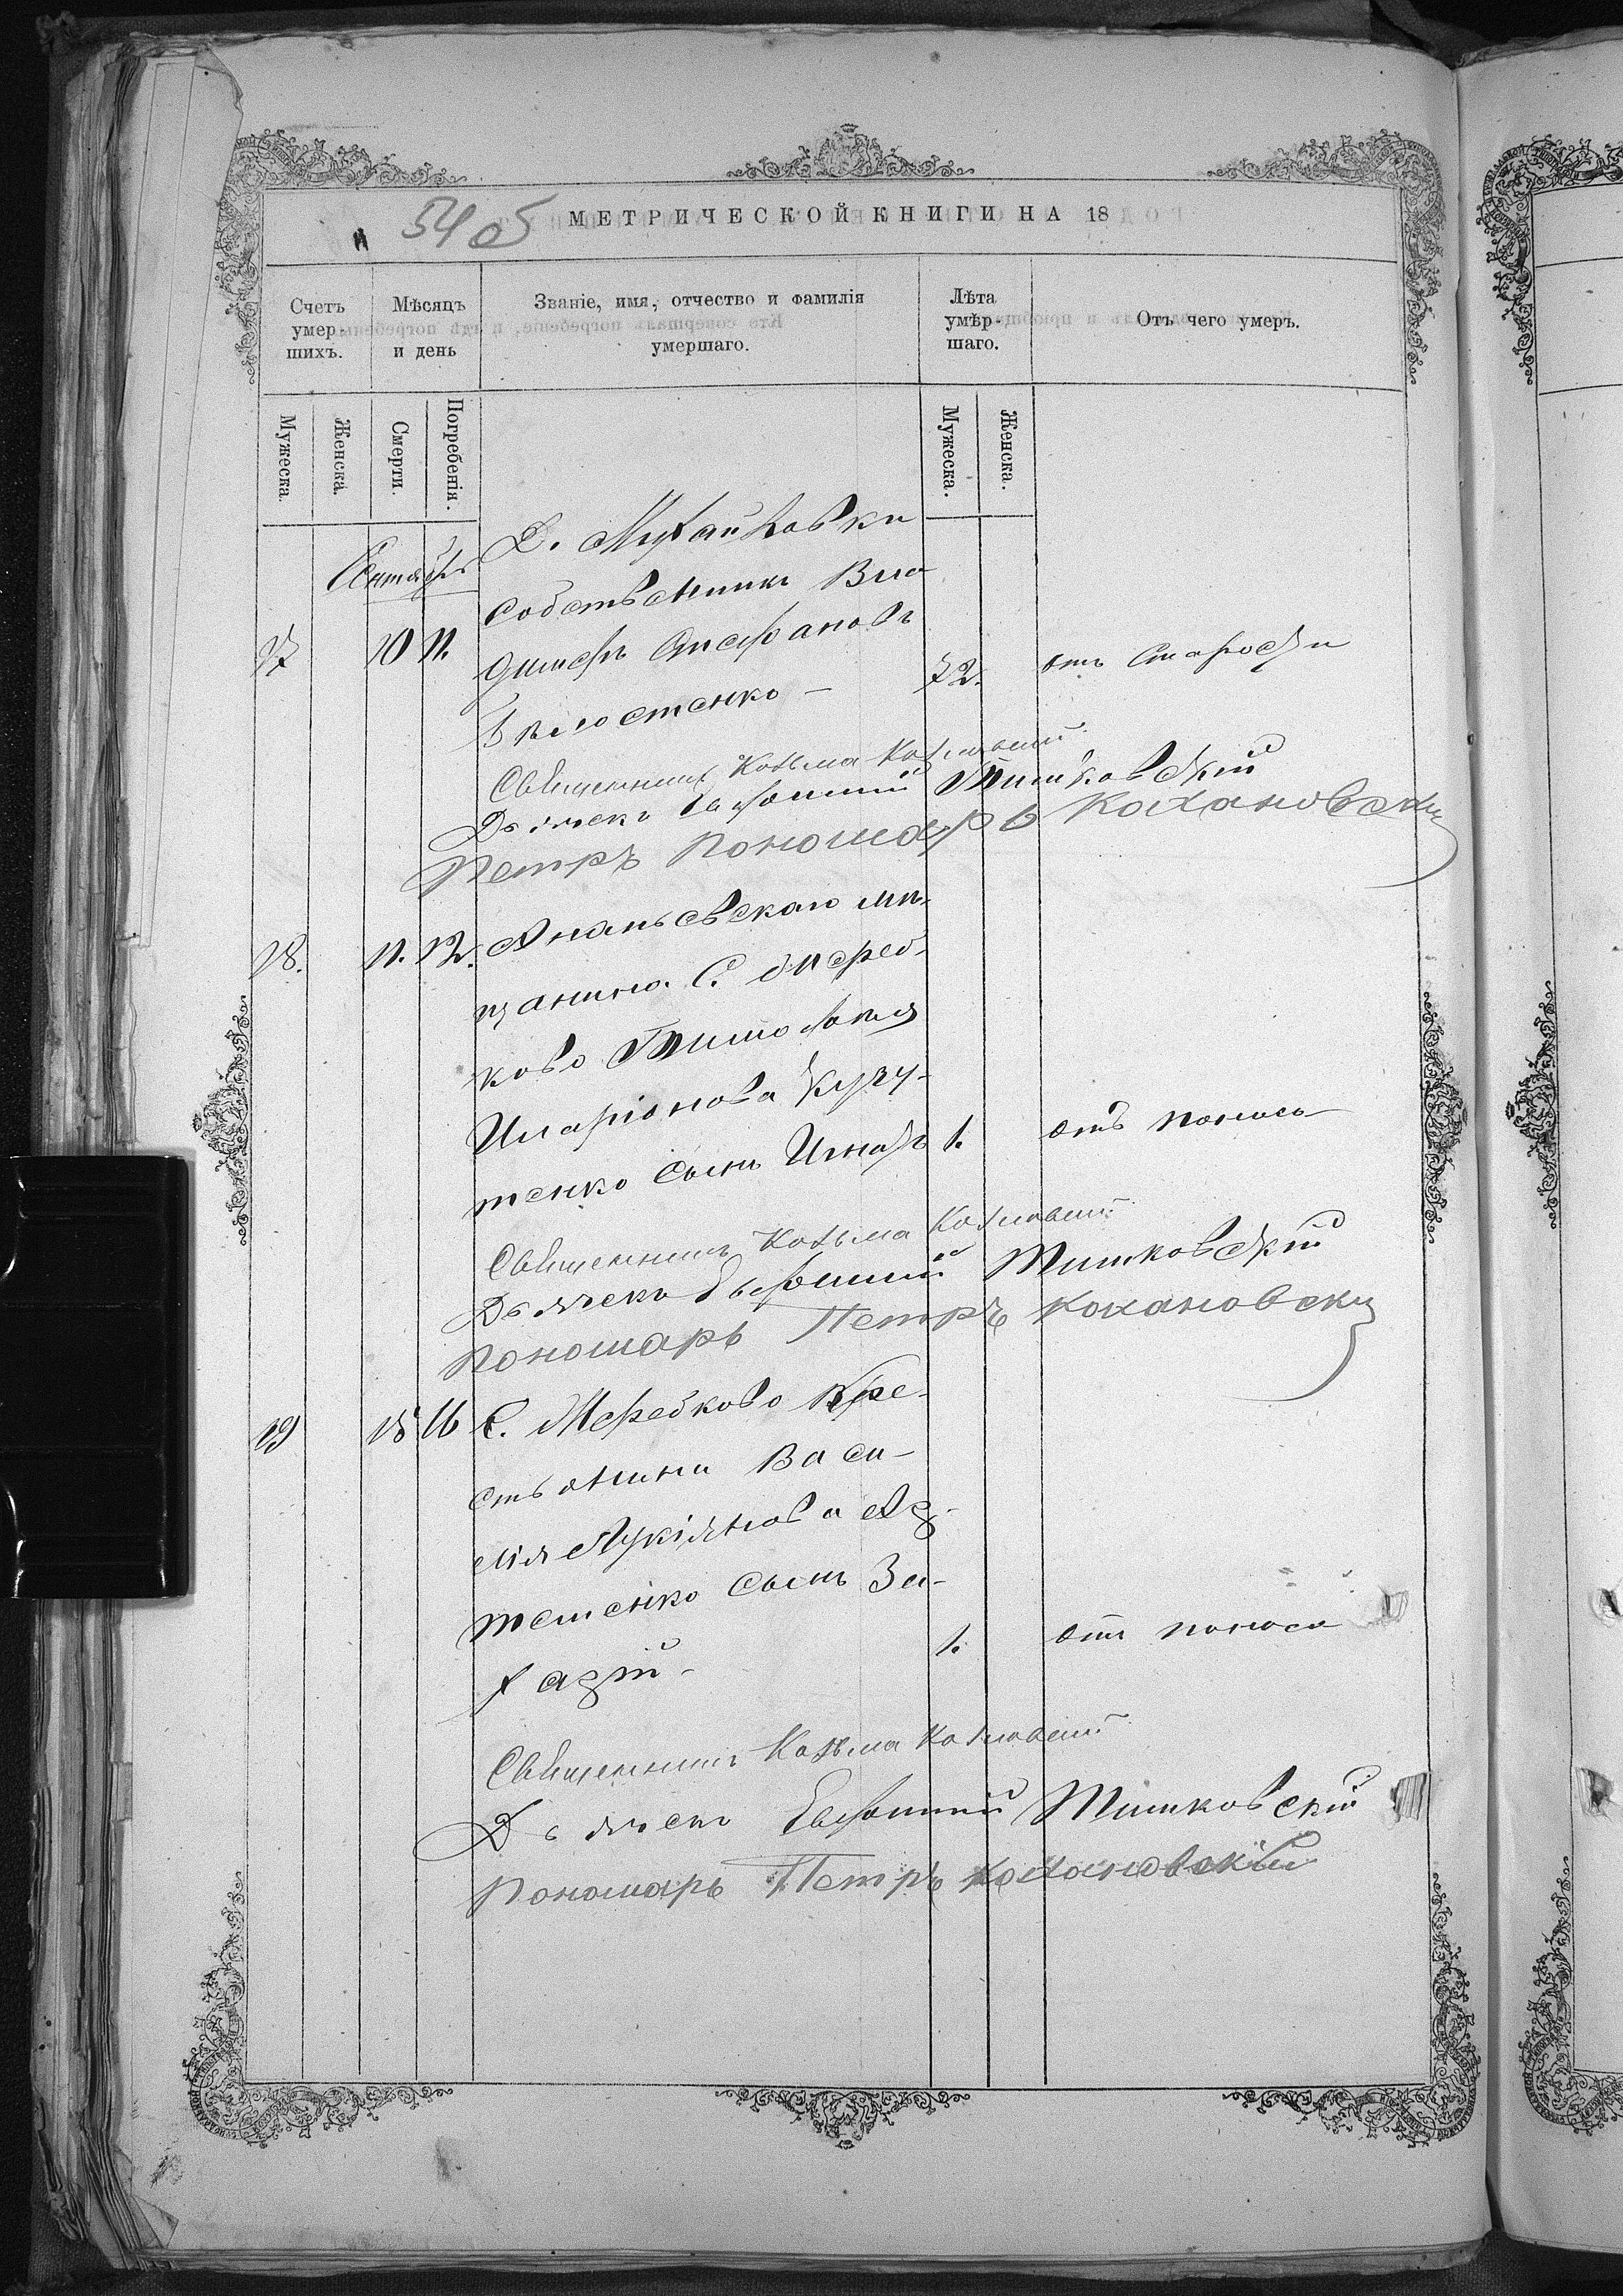 54 об
МЕТРИЧЕСКОЙ КНИГИ НА 18
Счетъ умер-шихъ.
Мѣсяцъ и день
Званіе, имя, отчество и фамилія умершаго.
Лѣта умѣр-шаго.
Отъ чего умеръ.
Мужеска.
Женска.
Смерти.
Погребенія.
Мужеска.
Женска.
Сентябрь
Д. Михайловки
собственникъ Вла
17 10 11.
димеръ Стефановъ
Бѣлостенко – 72. отъ старости
Священникъ Козьма
Дьячекъ Евфимий Тишковскій
Петръ Пономарь Кохановски
18. 11. 12. Ананьевскаго мѣ-
щанина С. Жереб-
ково Тимофея
Иларіонова Кугу-
тенко сынъ Игнатъ 1. отъ поноса
Священникъ Козьма
Дьячекъ Евфимий Тишковскій
Пономарь Петръ Кохановски
19 15 16 С. Жеребково Кре-
стьянина Васи-
лія Лукіянова Ар-
теменко сынъ За-
харій – 1. отъ поноса
Священникъ Козьма
Дьячекъ Евфимий Тишковскій
Пономарь Петръ Кохановский